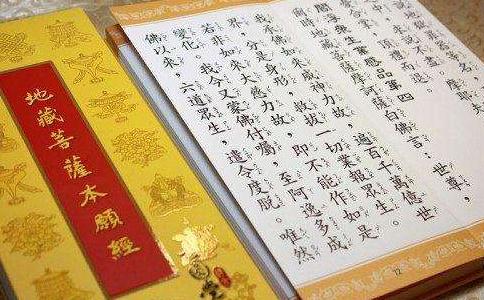 地藏菩薩本願經
說不盡。
合掌，頂禮而退。
閻浮眾生業感品第四
爾時地藏菩薩摩訶薩白佛言：世尊，
我承佛如來威神力故，遍百千萬億世
界，分是身形，救拔一切業報眾生。
若非如來大慈力故，即不能作如是
變化。我今又蒙佛付囑，至阿逸多成
佛以來，六道眾生，遣令度脫。唯然
12